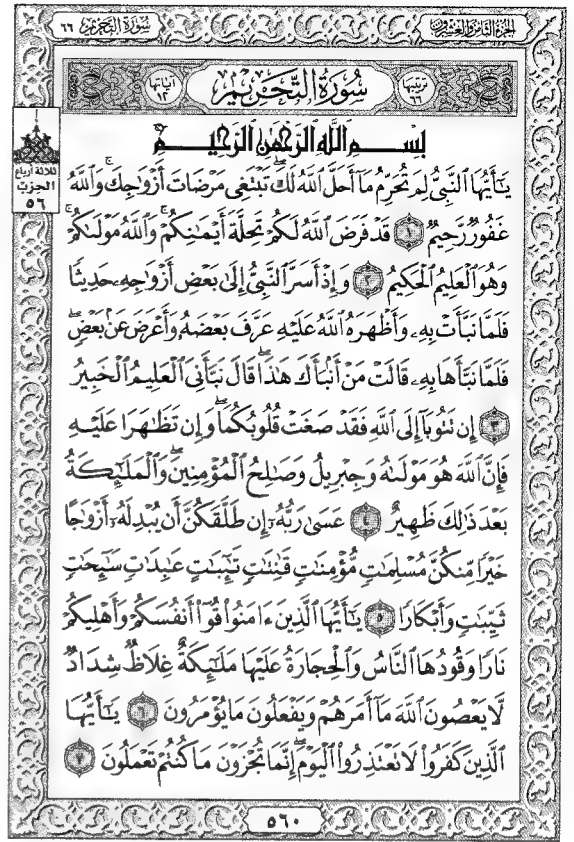 الجزء الثامن والعشرون
سورة التحريم ٦٦
ترتيبها ٦٦ سُورَةُ التَّحْرِيم آياتها ١٢
ثلاثة أرباع
الحزب
٥٦
بِسْمِ اللَّهِ الرَّحْمَٰنِ الرَّحِيمِ
يَٰٓأَيُّهَا ٱلنَّبِيُّ لِمَ تُحَرِّمُ مَآ أَحَلَّ ٱللَّهُ لَكَۖ تَبْتَغِي مَرْضَاتَ أَزْوَٰجِكَۚ وَٱللَّهُ
غَفُورٌ رَّحِيمٌ ١ قَدْ فَرَضَ ٱللَّهُ لَكُمْ تَحِلَّةَ أَيْمَٰنِكُمْۚ وَٱللَّهُ مَوْلَىٰكُمْۖ
وَهُوَ ٱلْعَلِيمُ ٱلْحَكِيمُ ٢ وَإِذْ أَسَرَّ ٱلنَّبِيُّ إِلَىٰ بَعْضِ أَزْوَٰجِهِۦ حَدِيثًا
فَلَمَّا نَبَّأَتْ بِهِۦ وَأَظْهَرَهُ ٱللَّهُ عَلَيْهِ عَرَّفَ بَعْضَهُۥ وَأَعْرَضَ عَنۢ بَعْضٍۖ
فَلَمَّا نَبَّأَهَا بِهِۦ قَالَتْ مَنْ أَنۢبَأَكَ هَٰذَاۖ قَالَ نَبَّأَنِيَ ٱلْعَلِيمُ ٱلْخَبِيرُ
٣ إِن تَتُوبَآ إِلَى ٱللَّهِ فَقَدْ صَغَتْ قُلُوبُكُمَاۖ وَإِن تَظَٰهَرَا عَلَيْهِ
فَإِنَّ ٱللَّهَ هُوَ مَوْلَىٰهُ وَجِبْرِيلُ وَصَٰلِحُ ٱلْمُؤْمِنِينَۖ وَٱلْمَلَٰٓئِكَةُ
بَعْدَ ذَٰلِكَ ظَهِيرٌ ٤ عَسَىٰ رَبُّهُۥٓ إِن طَلَّقَكُنَّ أَن يُبْدِلَهُۥٓ أَزْوَٰجًا
خَيْرًا مِّنكُنَّ مُسْلِمَٰتٍ مُّؤْمِنَٰتٍ قَٰنِتَٰتٍ تَٰٓئِبَٰتٍ عَٰبِدَٰتٍ سَٰٓئِحَٰتٍ
ثَيِّبَٰتٍ وَأَبْكَارًا ٥ يَٰٓأَيُّهَا ٱلَّذِينَ ءَامَنُوا۟ قُوٓا۟ أَنفُسَكُمْ وَأَهْلِيكُمْ
نَارًا وَقُودُهَا ٱلنَّاسُ وَٱلْحِجَارَةُ عَلَيْهَا مَلَٰٓئِكَةٌ غِلَاظٌ شِدَادٌ
لَّا يَعْصُونَ ٱللَّهَ مَآ أَمَرَهُمْ وَيَفْعَلُونَ مَا يُؤْمَرُونَ ٦ يَٰٓأَيُّهَا
ٱلَّذِينَ كَفَرُوا۟ لَا تَعْتَذِرُوا۟ ٱلْيَوْمَۖ إِنَّمَا تُجْزَوْنَ مَا كُنتُمْ تَعْمَلُونَ ٧
٥٦٠